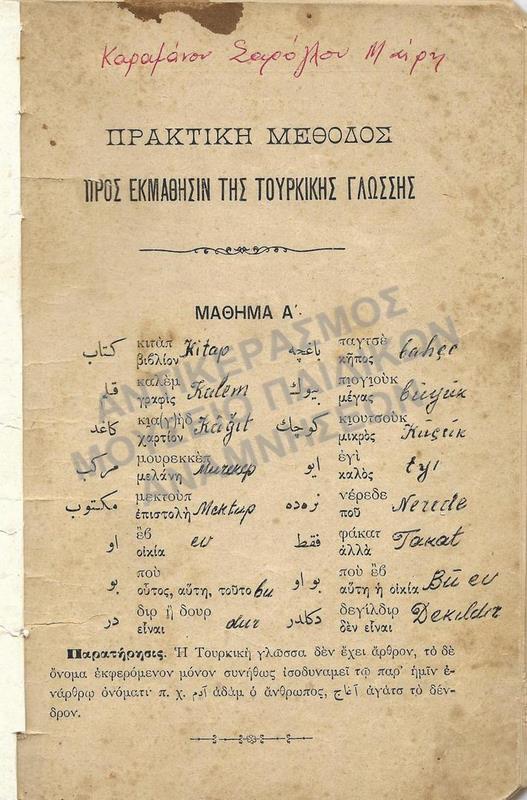 Καραμάνου Σαρόγλου Μαίρη
ΠΡΑΚΤΙΚΗ ΜΕΘΟΔΟΣ
ΠΡΟΣ ΕΚΜΑΘΗΣΙΝ ΤΗΣ ΤΟΥΡΚΙΚΗΣ ΓΛΩΣΣΗΣ
ΜΑΘΗΜΑ Α΄.
كتاب κιτὰπ βιβλίον Kitap
قلم καλὲμ γραφὶς Kalem
كاغد κια(γ)ὴδ χαρτίον Kâğıt
مركب μουρεκκὲπ μελάνη
مكتوب μεκτοὺπ ἐπιστολὴ Mektup
او ἒβ οἰκία ev
بو ποὺ οὗτος, αὕτη, τοῦτο bu
در διρ ἢ δουρ εἶναι dur
باغچه παγτσὲ κῆπος bahçe
بيوك πιογιοὺκ μέγας büyük
كوچك κιουτσοὺκ μικρὸς Küçük
ايو ἐγὶ καλὸς eyi
نرده νέρεδε ποῦ Nerede
فقط φάκατ ἀλλὰ Fakat
بو او ποὺ ἒβ αὕτη ἡ οἰκία Bu ev
دكلدر δεγίλδιρ δὲν εἶναι Dekildir
Παρατήρησις. Ἡ Τουρκικὴ γλῶσσα δὲν ἔχει ἄρθρον, τὸ δὲ
ὄνομα ἐκφερόμενον μόνον συνήθως ἰσοδυναμεῖ τῷ παρ' ἡμῖν ἐ-
νάρθρῳ ὀνόματι· π. χ. آدم ἀδὰμ ὁ ἄνθρωπος, آغاج ἀγὰτς τὸ δέν-
δρον.
ΑΝΤΙΚΕΡΑΣΜΟΣ
ΜΟΥΣΕΙΟ ΠΑΙΔΙΚΩΝ
ΑΝΑΜΝΗΣΕΩΝ